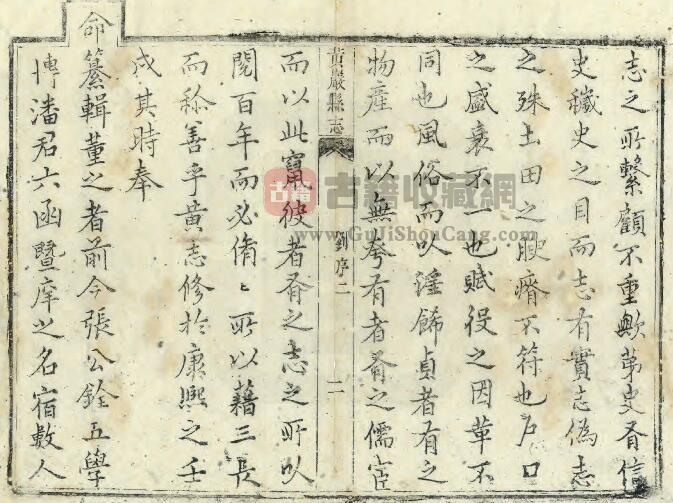 志之所繫顧不重歟第史有信
史穢史之目而志有實志偽志
之殊土田之腴瘠不符也戶口
之盛衰不一也賦役之因革不
同也風俗而以淫飾貞者有之
物產而以無夸有者有之儒宦
黃巖縣志
劉序二
二
而以此竄彼者有之志之所以
閱百年而必脩〻所以藉三長
而称善乎黃志修於康熙之壬
戌其時奉
命纂輯董之者前令張公銓五學
博潘君六函暨庠之名宿數人
古籍收藏網
www.GuJiShouCang.com